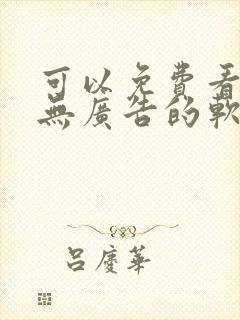 可以免費看
無廣告的軟
呂慶華